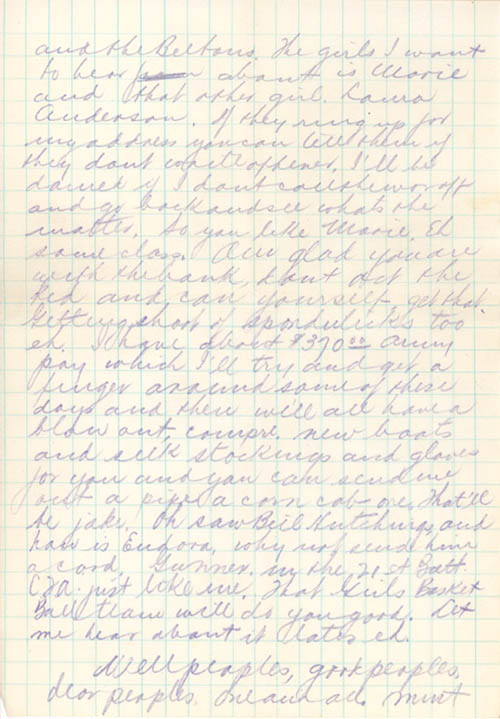 and the Beltons. The girls I want
to hear about is Marie
and that other girl. Laura
Anderson. If they ring up for
my address you can tell them if
they dont write oftener, I'll be
damed if I dont call the war off
and go back and see whats the
matter. So you like Marie, Eh
some class. Am glad you are
with the bank, dont act the
Kid and can yourself, get that.
Getting short of spondulicks too
eh. I have about $370.00 army
pay which I'll try and get a
finger around some of these
days and then we'll all have a
blow out, compre. new boots
and silk stockings and gloves
for you and you can send me
out a pipe, a corn cob one, That'll
be jake. Oh saw Bill Hutchings, and
how is Eudora, why not send him
a card, Gunner. in the 21st Batt
C.F.A. just like me. That Girls Basket
Ball team will do you good. Let
me hear about it later eh.
Well peoples, good peoples,
dear peoples. one and all.